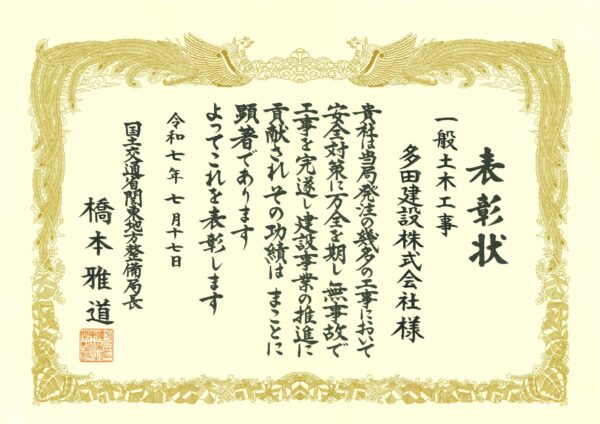 表彰状
一般土木工事
多田建設株式会社様
貴社は当局発注の幾多の工事において
安全対策に万全を期し無事故で
工事を完遂し建設事業の推進に
貢献されその功績はまことに
顕著であります
よってこれを表彰します
令和七年七月十七日
国土交通省関東地方整備局長
橋本雅道